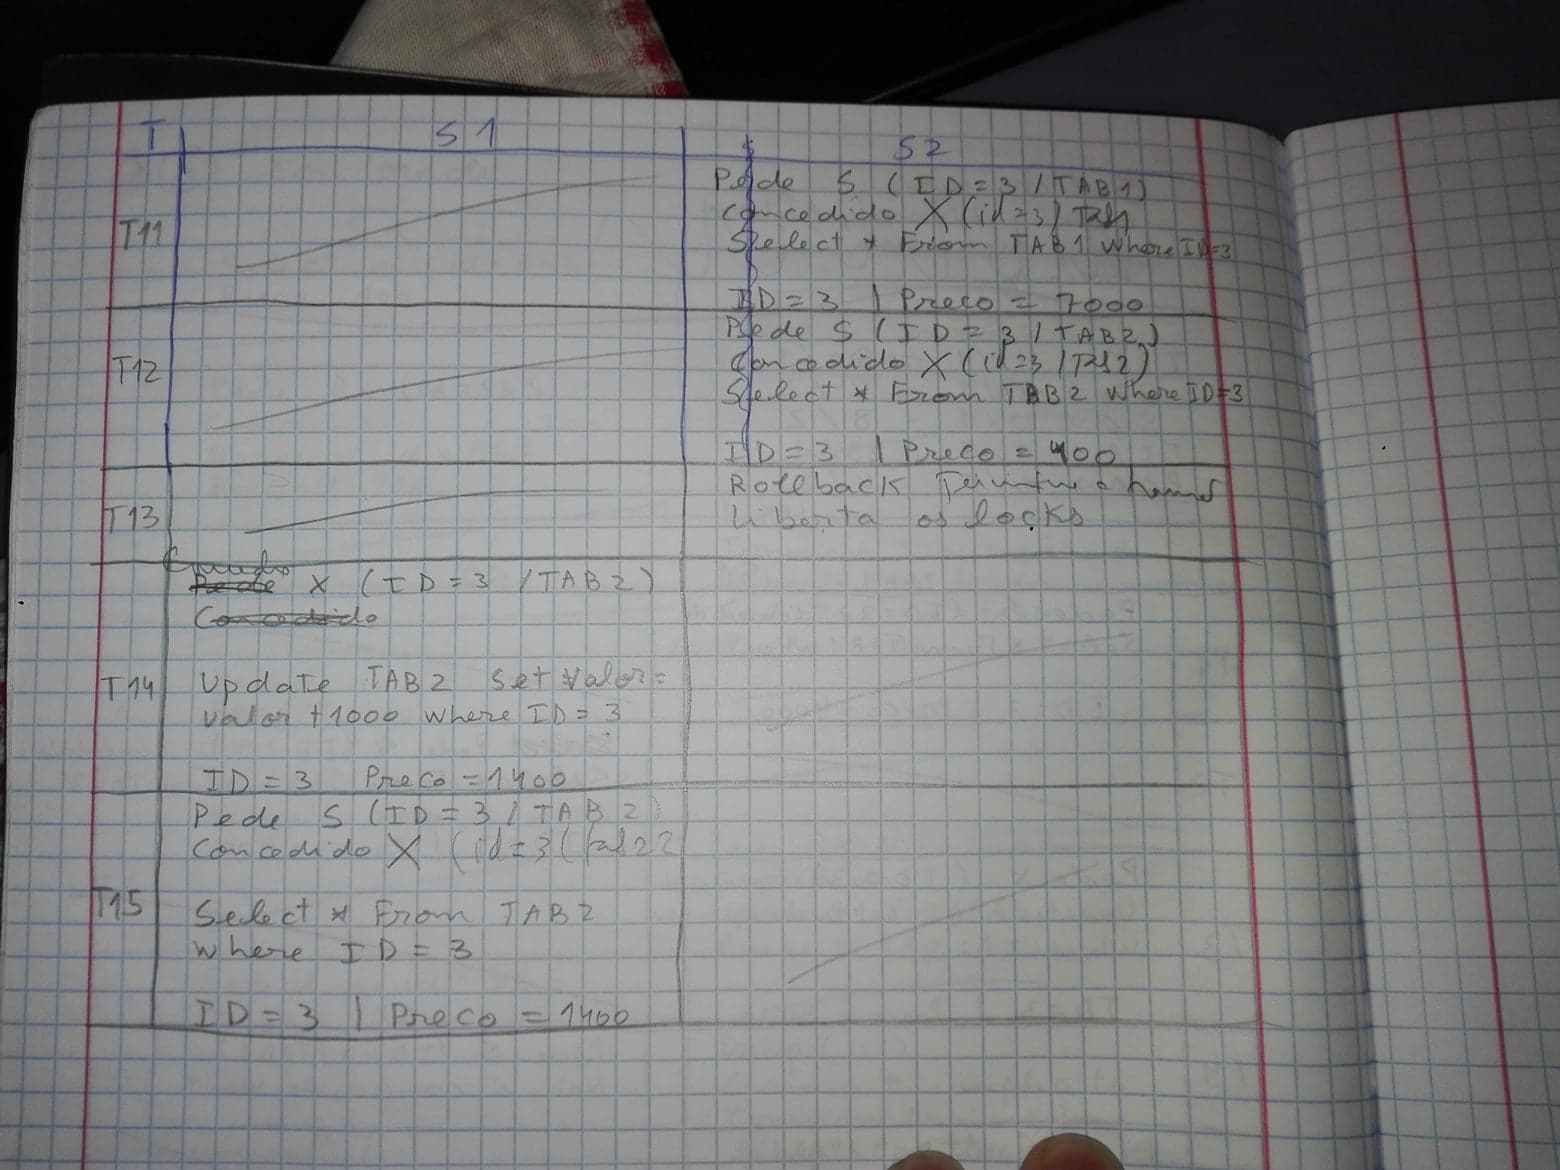 T S1 S2
T11
Pede S (ID=3 / TAB1)
Concedido X (id=3)
Select * From TAB1 where ID=3
ID=3 | Preco = 7000
T12
Pede S (ID=3 / TAB2)
Concedido X (id=3 / Tab2)
Select * From TAB2 where ID=3
ID=3 | Preco = 400
T13
Rollback
Liberta os locks
T14
X (ID=3 / TAB2)
Concedido
Update TAB2 set valor=
valor +1000 where ID=3
ID=3 Preco=1400
T15
Pede S (ID=3 / TAB2)
Concedido X (id=3
Select * From TAB2
where ID=3
ID=3 | Preco = 1400